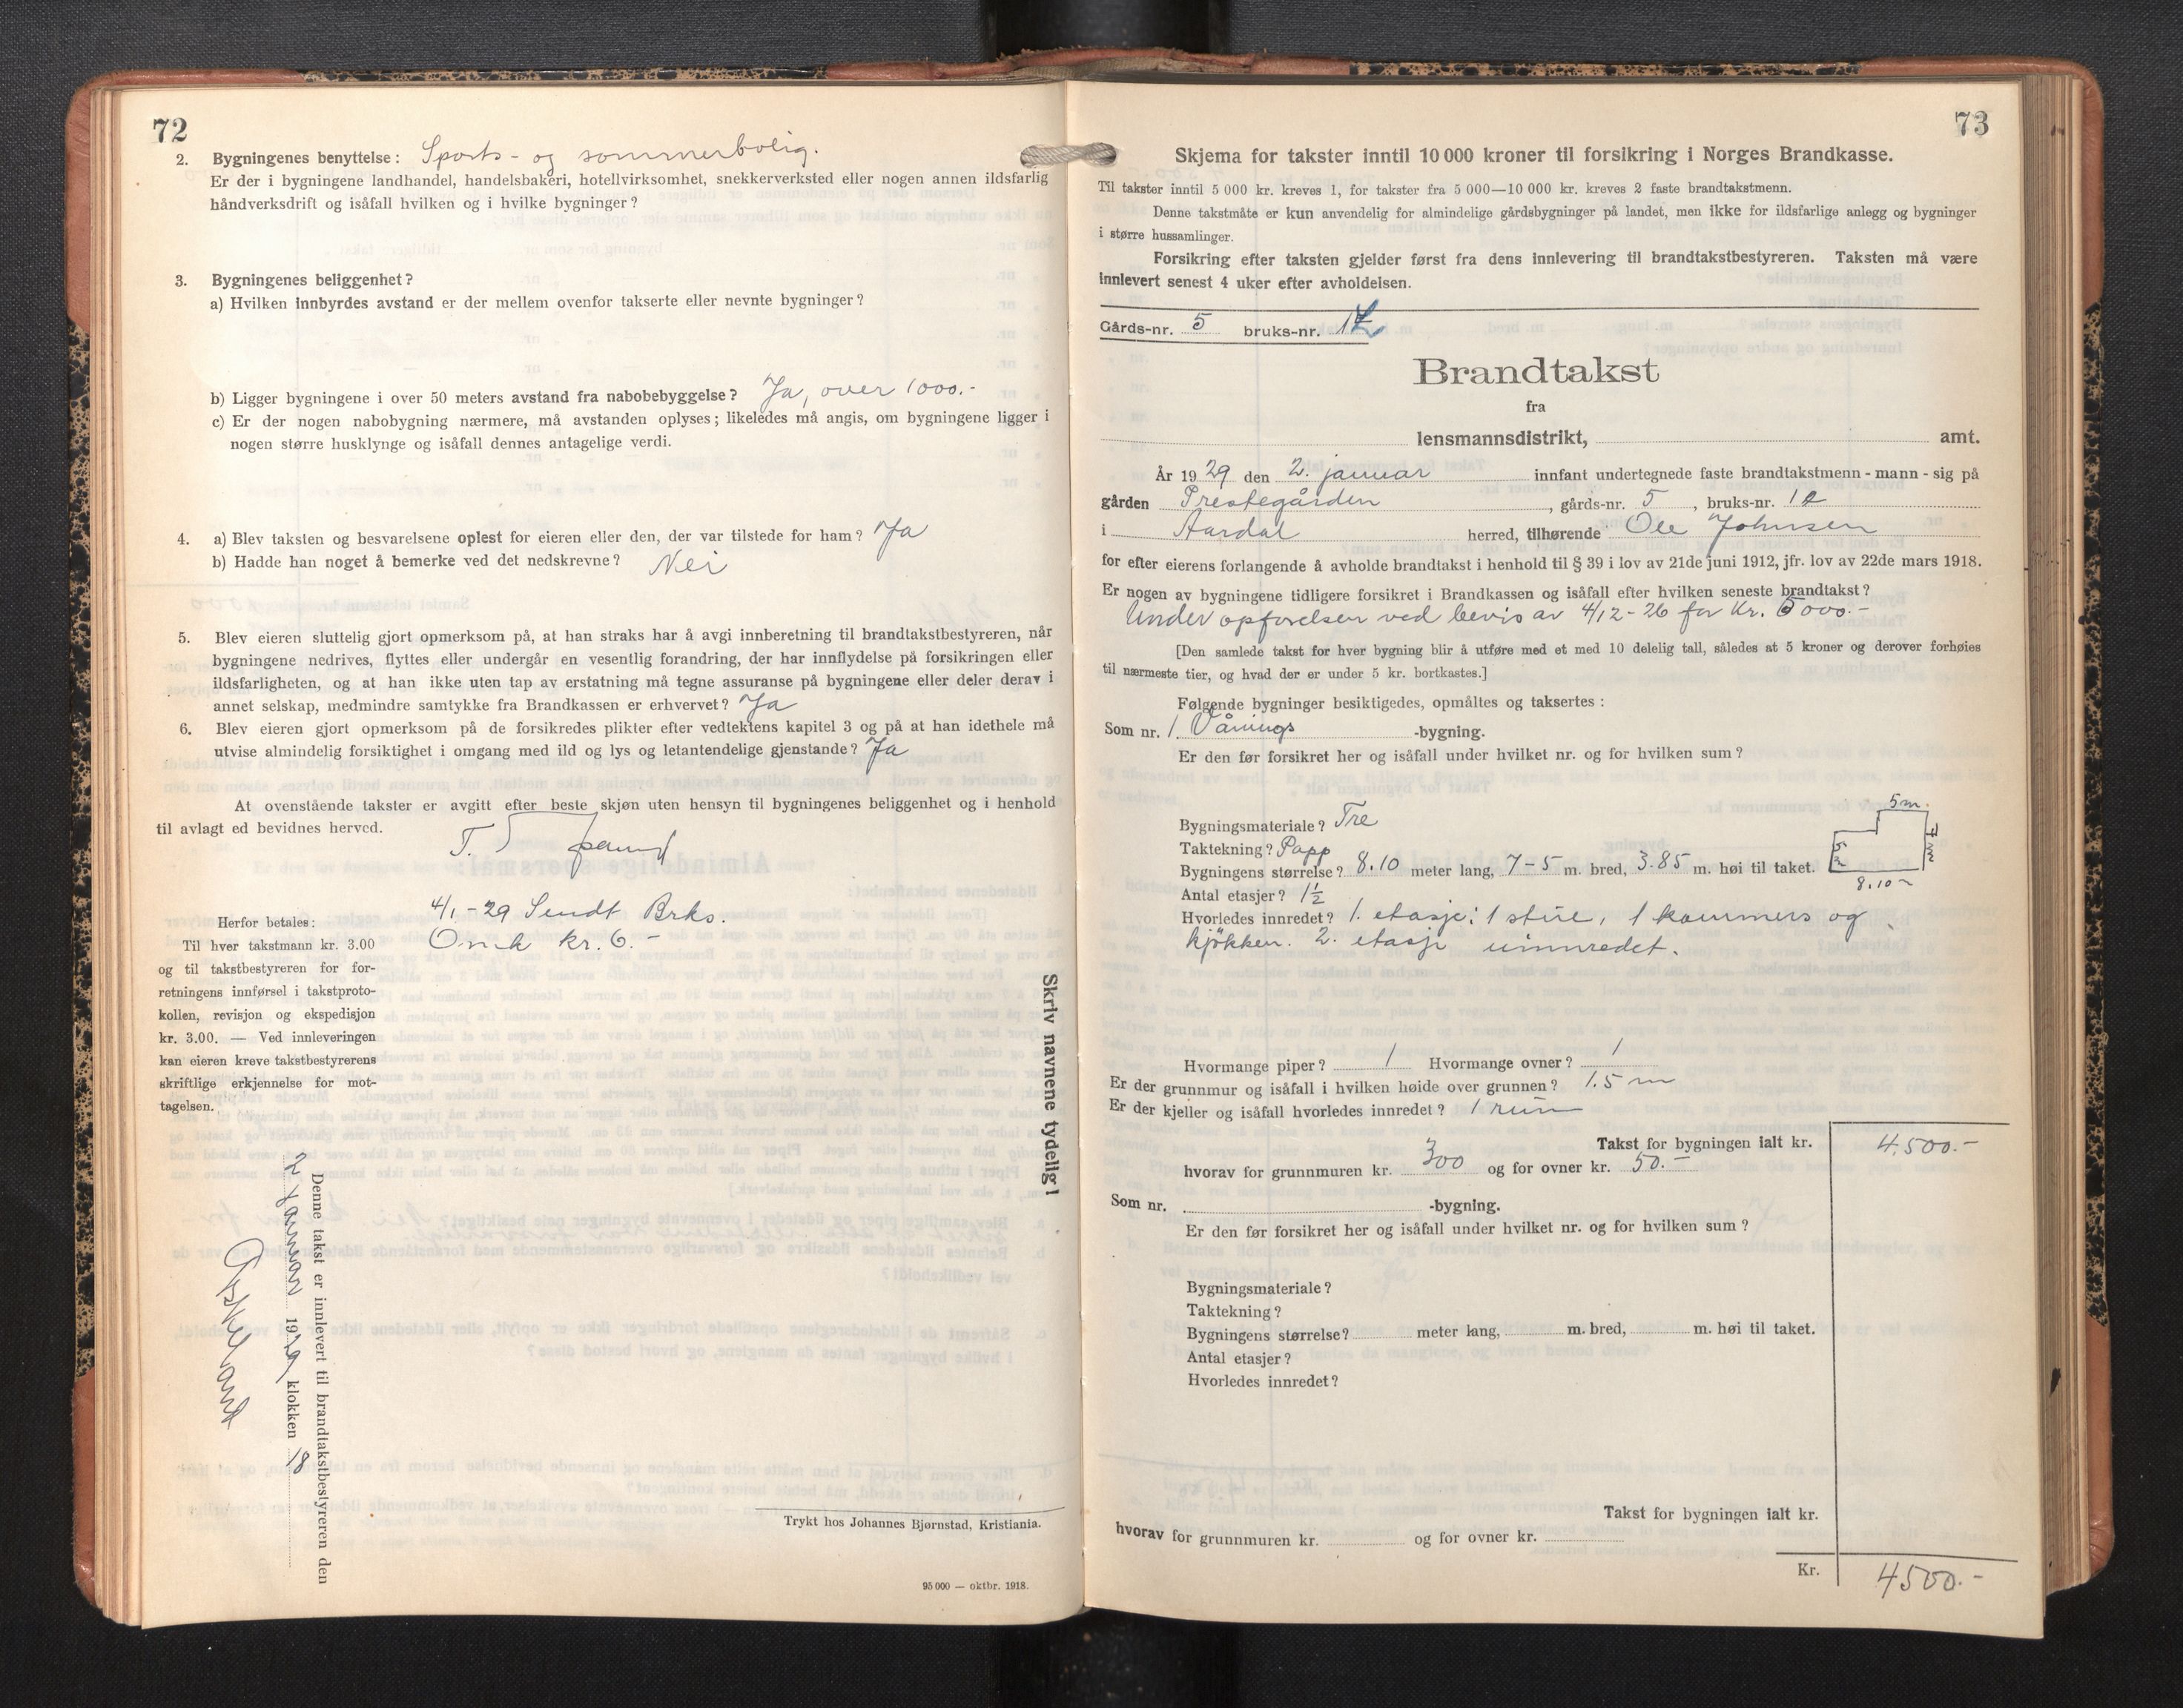 72
2. Bygningenes benyttelse: Sports- og sommerbolig.
Er der i bygningene landhandel, handelsbakeri, hotellvirksomhet, snekkerverksted eller nogen annen ildsfarlig
håndverksdrift og isåfall hvilken og i hvilke bygninger?
3. Bygningenes beliggenhet?
a) Hvilken innbyrdes avstand er der mellem ovenfor takserte eller nevnte bygninger?
b) Ligger bygningene i over 50 meters avstand fra nabobebyggelse? Ja, over 1000.-
c) Er der nogen nabobygning nærmere, må avstanden oplyses; likeledes må angis, om bygningene ligger i
nogen større husklynge og isåfall dennes antagelige verdi.
4. a) Blev taksten og besvarelsene oplest for eieren eller den, der var tilstede for ham? Ja
b) Hadde han noget å bemerke ved det nedskrevne? Nei
5. Blev eieren sluttelig gjort opmerksom på, at han straks har å avgi innberetning til brandtakstbestyreren, når
bygningene nedrives, flyttes eller undergår en vesentlig forandring, der har innflydelse på forsikringen eller
ildsfarligheten, og at han ikke uten tap av erstatning må tegne assuranse på bygningene eller deler derav i
annet selskap, medmindre samtykke fra Brandkassen er erhvervet? Ja
6. Blev eieren gjort opmerksom på de forsikredes plikter efter vedtektens kapitel 3 og på at han idethele må
utvise almindelig forsiktighet i omgang med ild og lys og letantendelige gjenstande? Ja
At ovenstående takster er avgitt efter beste skjøn uten hensyn til bygningenes beliggenhet og i henhold
til avlagt ed bevidnes herved.
4/1-29 Sendt Brks.
kr. 6.-
Herfor betales:
Til hver takstmann kr. 3.00
og til takstbestyreren for for-
retningens innførsel i takstproto-
kollen, revisjon og ekspedisjon
kr. 3.00. — Ved innleveringen
kan eieren kreve takstbestyrerens
skriftlige erkjennelse for mot-
tagelsen.
Skriv navnene tydelig!
Denne takst er innlevert til brandtakstbestyreren den
2 januar 1929 klokken 18
Trykt hos Johannes Bjørnstad, Kristiania.
95 000 — oktbr. 1918.
73
Skjema for takster inntil 10 000 kroner til forsikring i Norges Brandkasse.
Til takster inntil 5 000 kr. kreves 1, for takster fra 5 000—10 000 kr. kreves 2 faste brandtakstmenn.
Denne takstmåte er kun anvendelig for almindelige gårdsbygninger på landet, men ikke for ildsfarlige anlegg og bygninger
i større hussamlinger.
Forsikring efter taksten gjelder først fra dens innlevering til brandtakstbestyreren. Taksten må være
innlevert senest 4 uker efter avholdelsen.
Gårds-nr. 5 bruks-nr.
Brandtakst
fra
lensmannsdistrikt, amt.
År 1929 den 2. januar innfant undertegnede faste brandtakstmenn - mann - sig på
gården Prestegården, gårds-nr. 5, bruks-nr. 12
i Aardal herred, tilhørende Ole Johnsen
for efter eierens forlangende å avholde brandtakst i henhold til § 39 i lov av 21de juni 1912, jfr. lov av 22de mars 1918.
Er nogen av bygningene tidligere forsikret i Brandkassen og isåfall efter hvilken seneste brandtakst?
Under opførelsen ved bevis av 4/12-26 for Kr. 5000.-
[Den samlede takst for hver bygning blir å utføre med et med 10 delelig tall, således at 5 kroner og derover forhøies
til nærmeste tier, og hvad der er under 5 kr. bortkastes.]
Følgende bygninger besiktigedes, opmåltes og taksertes:
Som nr. 1 Vånings -bygning.
Er den før forsikret her og isåfall under hvilket nr. og for hvilken sum?
Bygningsmateriale? Tre
Taktekning? Papp
Bygningens størrelse? 8.10 meter lang, 7-5 m. bred, 3.85 m. høi til taket.
5 m.
7 m
5 m
8.10 m
Antal etasjer? 1½
Hvorledes innredet? 1. etasje: 1 stue, 1 kammers og
kjøkken. 2. etasje uinnredet.
Hvormange piper? 1 Hvormange ovner? 1
Er der grunnmur og isåfall i hvilken høide over grunnen? 1.5 m
Er der kjeller og isåfall hvorledes innredet? 1 rum
Takst for bygningen ialt kr. 4.500.-
hvorav for grunnmuren kr. 300 og for ovner kr. 50.-
Som nr. -bygning.
Er den før forsikret her og isåfall under hvilket nr. og for hvilken sum?
Bygningsmateriale?
Taktekning?
Bygningens størrelse? meter lang, m. bred, m. høi til taket.
Antal etasjer?
Hvorledes innredet?
Takst for bygningen ialt kr.
hvorav for grunnmuren kr. og for ovner kr.
Kr. 4500.-